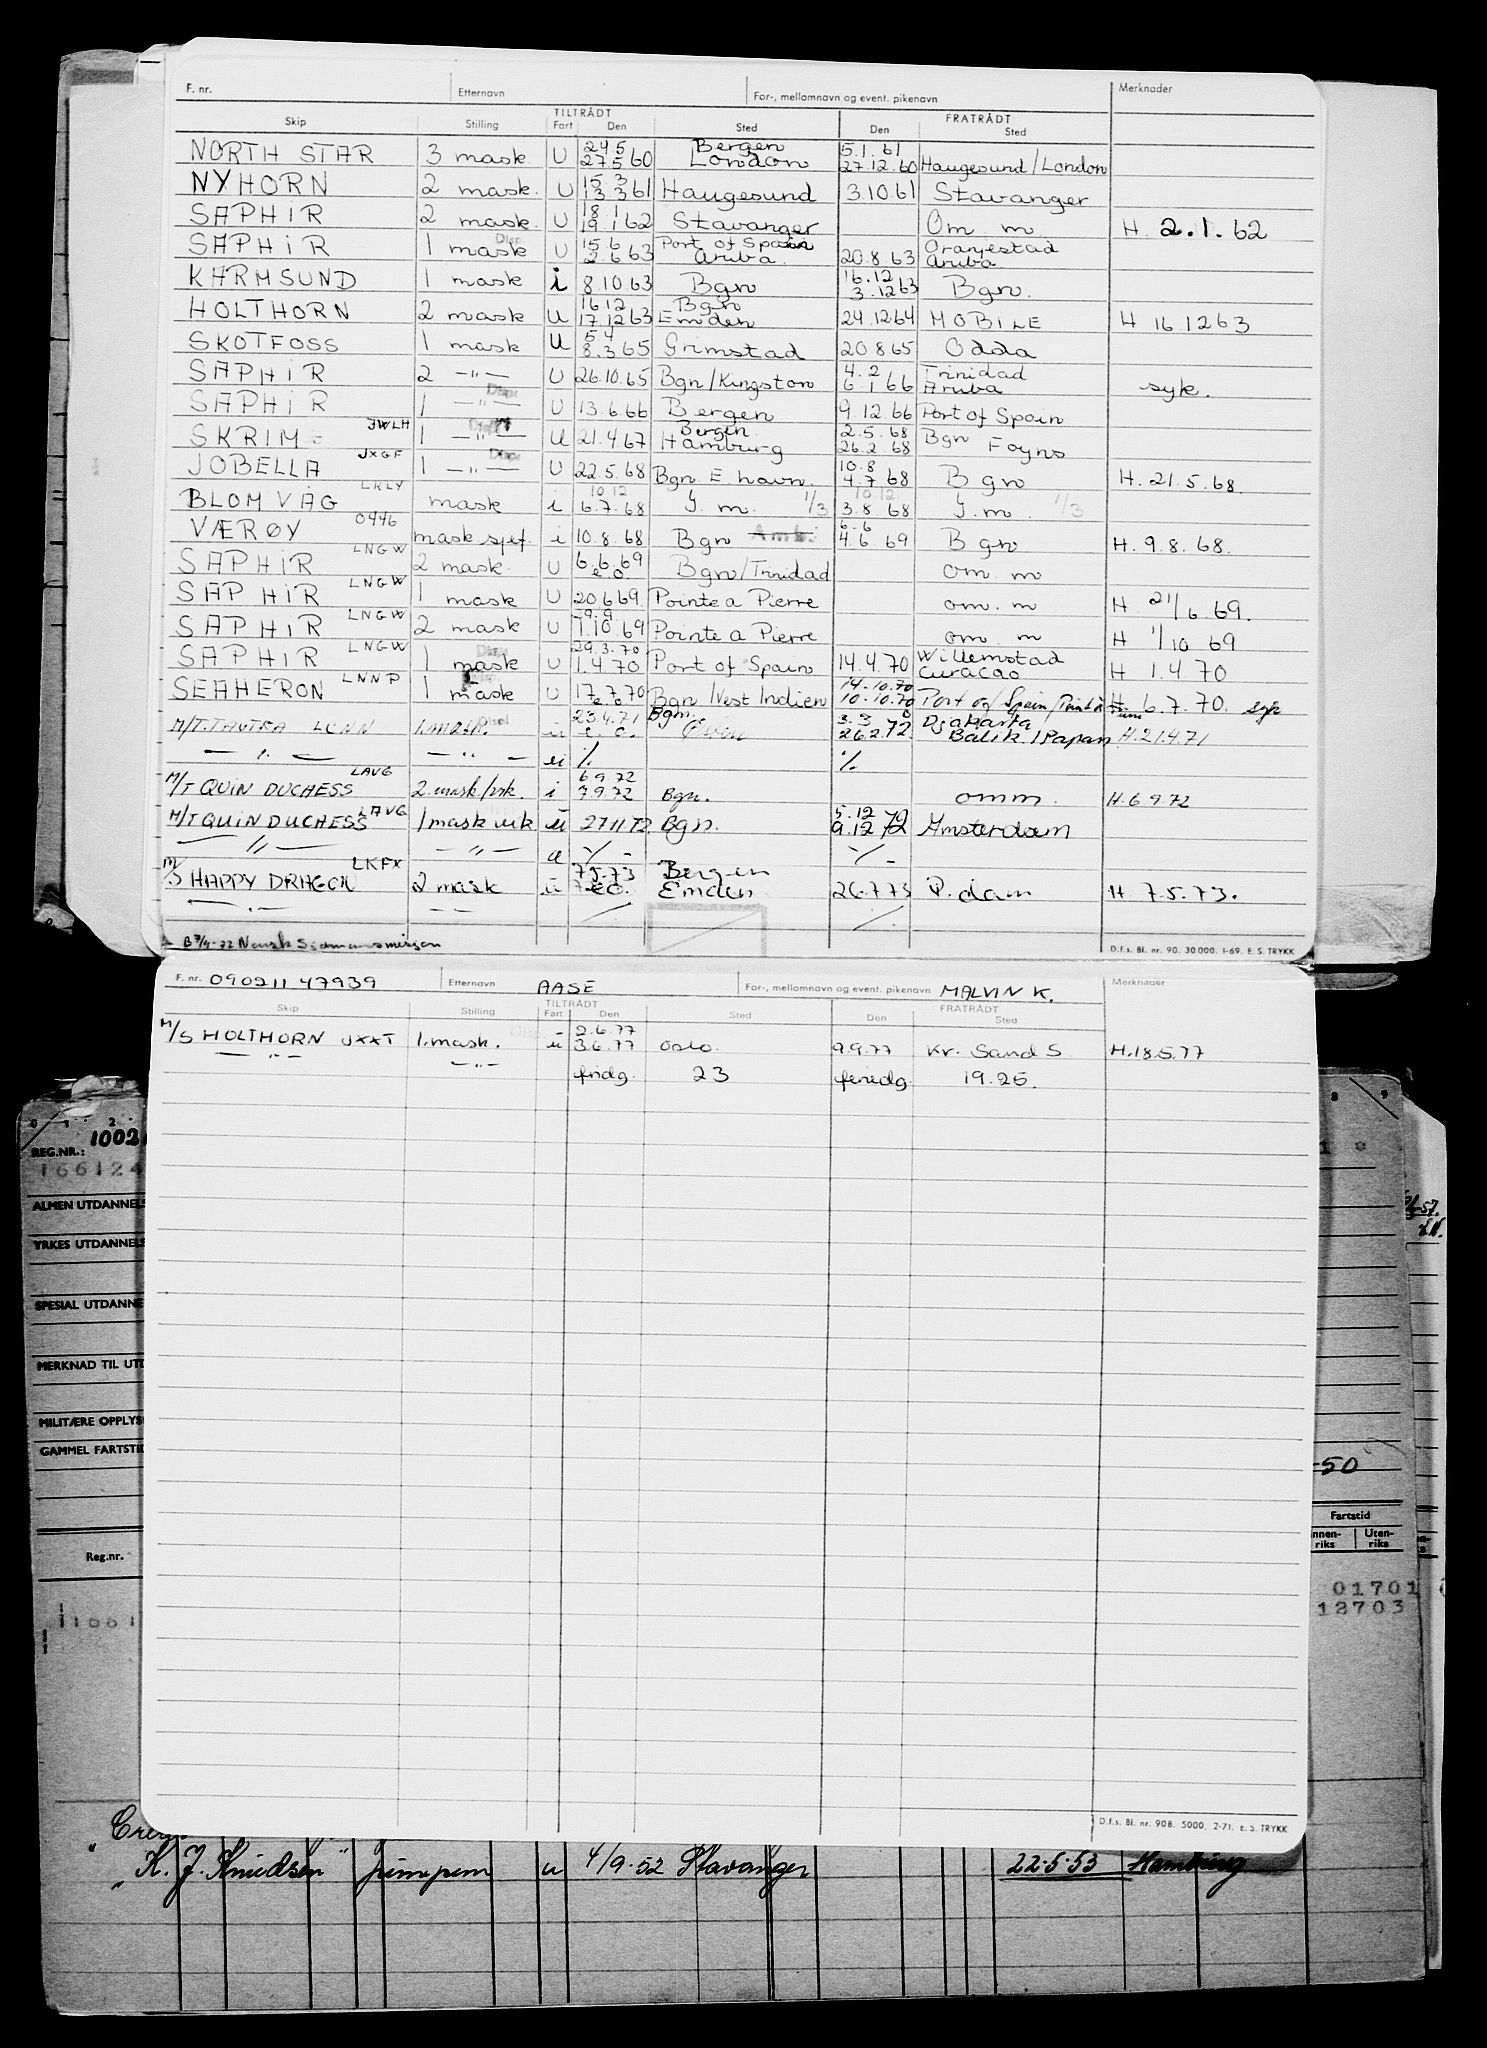 F. nr. Etternavn For-, mellomnavn og event. pikenavn Merknader
TILTRÅDT FRATRÅDT
Skip Stilling Fart Den Sted Den Sted
24.5 Bergen 5.1.61
NORTH STAR 3 mask. U 27.5 60 London 27.12.60 Haugesund/London
15 3
NYHORN 2 mask. U 13 3 61 Haugesund 3.10.61 Stavanger
18
SAPHIR 2 mask. U 19.1 62 Stavanger Om. m. H. 2.1.62
15.6 Port of Spain Oranjestad
SAPHIR 1 mask U 2.6 63 Aruba. 20.8 63 Aruba
16.12
KARMSUND 1 mask i 8.10.63 Bgn 3.12 63 Bgn.
16.12 Bgn
HOLTHORN 2 mask U 17.12 63 Emden 24.12 64 MOBILE H 16.12 63
5 4
SKOTFOSS 1 mask U 8.3 65 Grimstad 20 8 65 Odda
4. 2 Trinidad
SAPHIR 2 -"- U 26.10.65 Bgn/Kingston 6.1 66 Aruba syk.
SAPHIR 1 -"- U 13.6 66 Bergen 9.12.66 Port of Spain
JWLH Bergen 2.5.68
SKRIM 1 -"- U 21.4 67 Hamburg 26.2.68 Bgn Foyns
JXGF 10.8
JOBELLA 1 -"- U 22.5.68 Bgn E. havn. 4.7 68 Bgn H. 21.5.68.
LKLY 10.12 10.12.
BLOMVÅG mask i 6.7.68 J. m. 1/3 3.8 68 J. m. 1/3
0446 6.6
VÆRØY mask.sjef i 10.8.68 Bgn 4.6.69 Bgn H. 9.8.68.
LNGW
SAPHIR 2 mask. U 6.6.69 e.o. Bgn/Trinidad om. m
LNGW
SAPHIR 1 mask U 20.6 69. Pointe a Pierre om. m H. 21/6.69.
LNGW 29.9
SAPHIR 2 mask U 1.10.69 Pointe a Pierre om. m H 1/10 69
LNGW 29.3.70 Willemstad
SAPHIR 1 mask U 1.4.70 Port of Spain 14.4.70 Curacao H 1.4 70
LNNP 14.10.70
SEAHERON 1 mask U 17.7.70 e.o. Bgn/Vest Indien 10.10.70 Port of Spain H. 6.7.70.
23.4.71 Bgn. 3.3 Djakarta
M/T. TANTRA LCNN 1.mask. u e.o. 26.2.72 Balik/Papan H.21.4.71
-"- -"- u % %
LAVG 6.9.72
M/T QUIN DUCHESS i 7.9.72 Bgn. omm. H.6 9.72
LAVG 5.12
M/T QUIN DUCHESS 1 mask u 27 11 72 Bgn. 9.12 72 Amsterdam
-"- -"- u -/- -/-
LKFX 7.5.73 Bergen
M/S HAPPY DRAGON 2 mask u e.o. Emden 26.7.73 P. dam H 7.5.73.
Norsk Sjømannsmisjon D.f.s. Bl. nr. 90. 30 000. 1-69. E. S. TRYKK
F. nr. 090211 47939 Etternavn AASE For-, mellomnavn og event. pikenavn MALVIN K. Merknader
TILTRÅDT FRATRÅDT
Skip Stilling Fart Den Sted Den Sted
2.6.77
M/S HOLTHORN JXXT 1.mask. u 3.6.77 Oslo. 9.9.77 Kr. Sand S H.18.5.77
-"- -"- fridg. 23 feriedg. 19.25.
D.f.s. Bl. nr. 90 B. 5000. 2-71. E. S. TRYKK
REG.NR.: 1002
166124
ALMEN UTDANNELS
YRKES UTDANNELS
SPESIAL UTDANNE
MERKNAD TIL UTD
MILITÆRE OPPLYS
GAMMEL FARTSTID
-50
Fartstid
Reg.nr. nnen-riks Uten-riks
01701
12703
K. J. Knudsen pumpem u 4/9.52 Stavanger 22.5.53 Hamburg